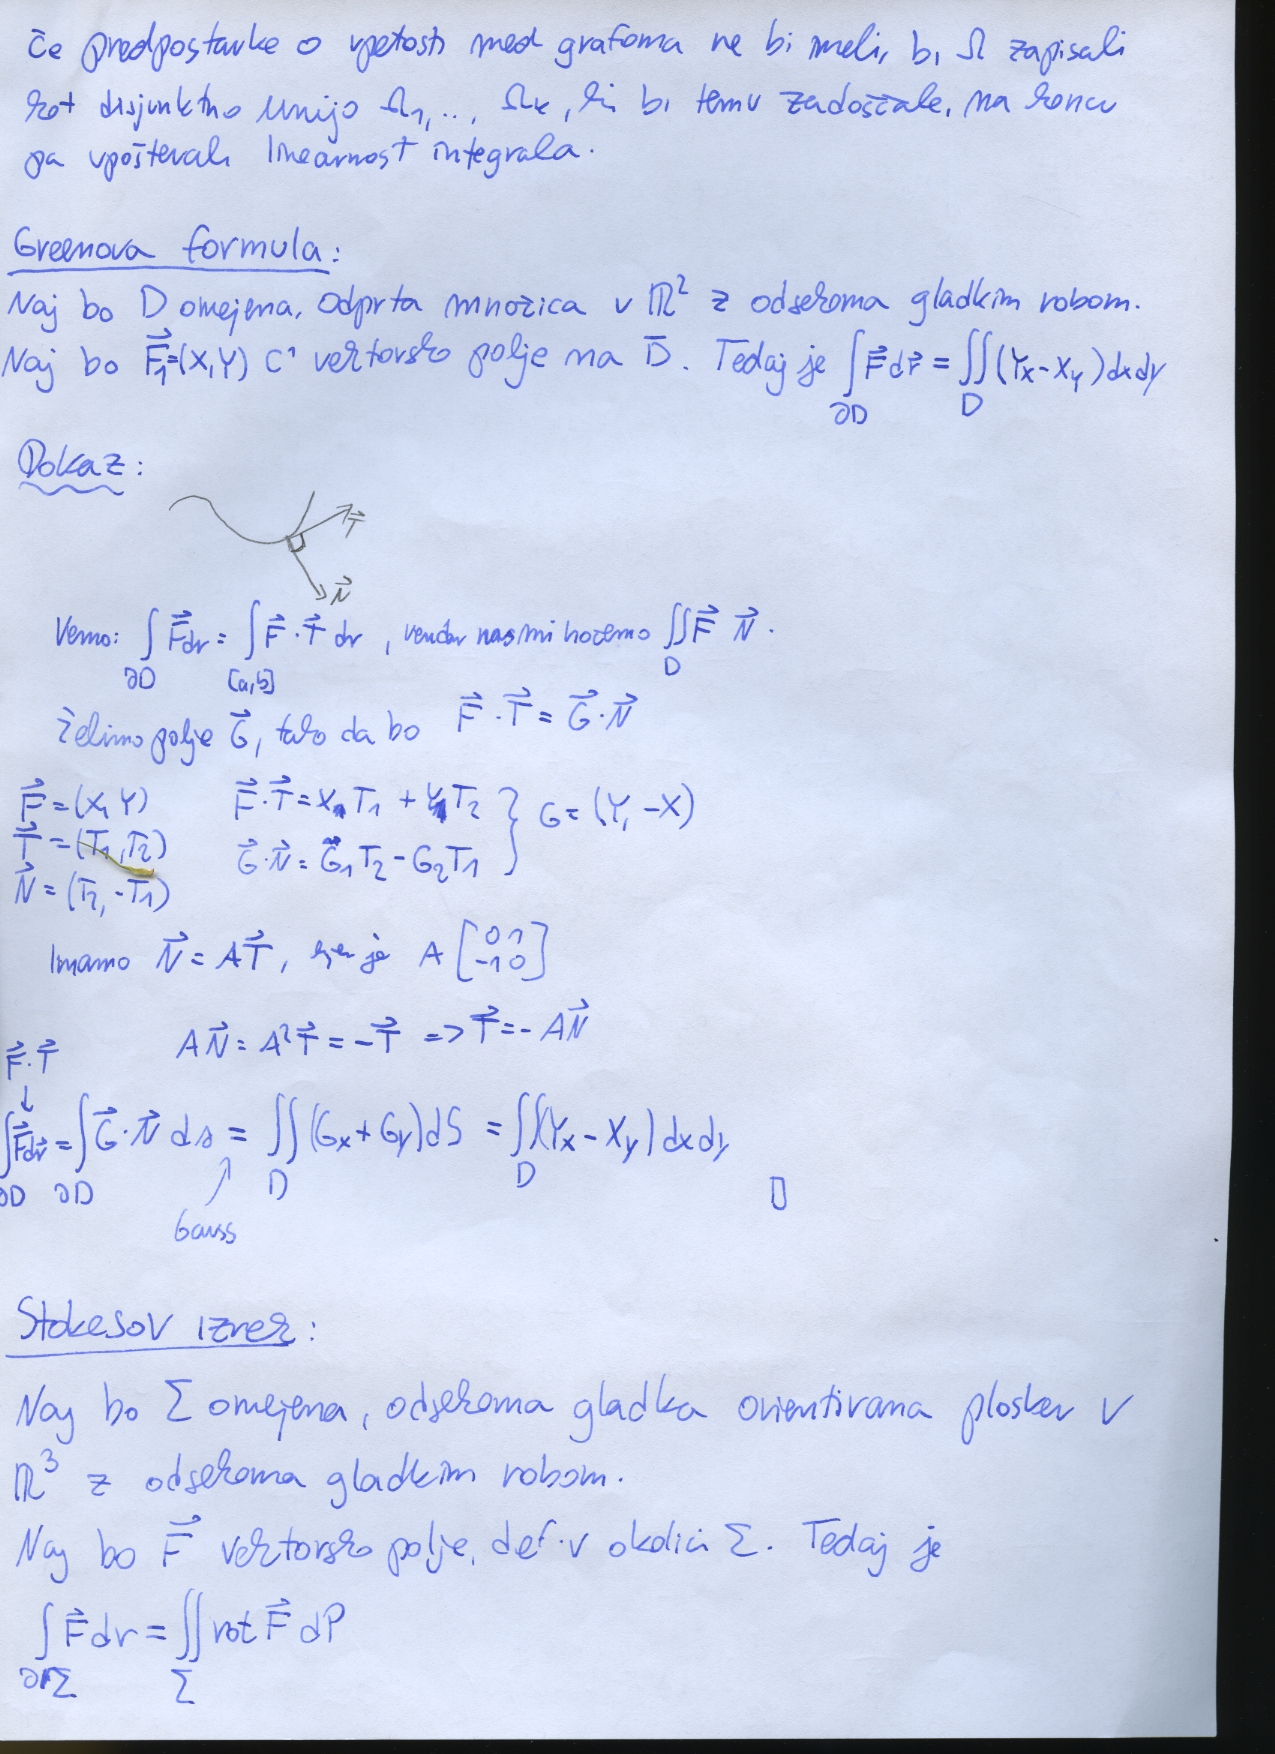 Če predpostavke o vpetosti med grafoma ne bi imeli, bi Ω zapisali
kot disjunktno unijo Ω₁,..., Ωₖ, ki bi temu zadoščale, na koncu
pa upoštevali linearnost integrala.
Greenova formula:
Naj bo D omejena, odprta množica v ℝ² z odsekoma gladkim robom.
Naj bo F⃗=(X,Y) C¹ vektorsko polje na D̄. Tedaj je ∫_∂D F⃗ dr⃗ = ∬_D (Yx-Xy) dxdy
Dokaz:
T⃗
N⃗
Vemo: ∫_∂D F⃗dr = ∫_[a,b] F⃗·T⃗ dr, vendar mi hočemo ∬_D F⃗ N⃗.
Želimo polje G⃗, tako da bo F⃗·T⃗ = G⃗·N⃗
F⃗=(X,Y) F⃗·T⃗=X T₁ + Y T₂ } G=(Y,-X)
T⃗=(T₁,T₂)
N⃗=(T₂,-T₁) G⃗·N⃗=G₁T₂-G₂T₁
Imamo N⃗=AT⃗, kjer je A [0 1
-1 0]
AN⃗=A²T⃗=-T⃗ => T⃗=-AN⃗
F⃗·T⃗
↓
∫_∂D F⃗dr⃗ = ∫_∂D G⃗·N⃗ ds = ∬_D (Gx+Gy)dS = ∬_D (Yx-Xy) dxdy
Gauss
Stokesov izrek:
Naj bo Σ omejena, odsekoma gladka orientirana ploskev v
ℝ³ z odsekoma gladkim robom.
Naj bo F⃗ vektorsko polje, def. v okolici Σ. Tedaj je
∫_∂Σ F⃗dr = ∬_Σ rot F⃗ dP